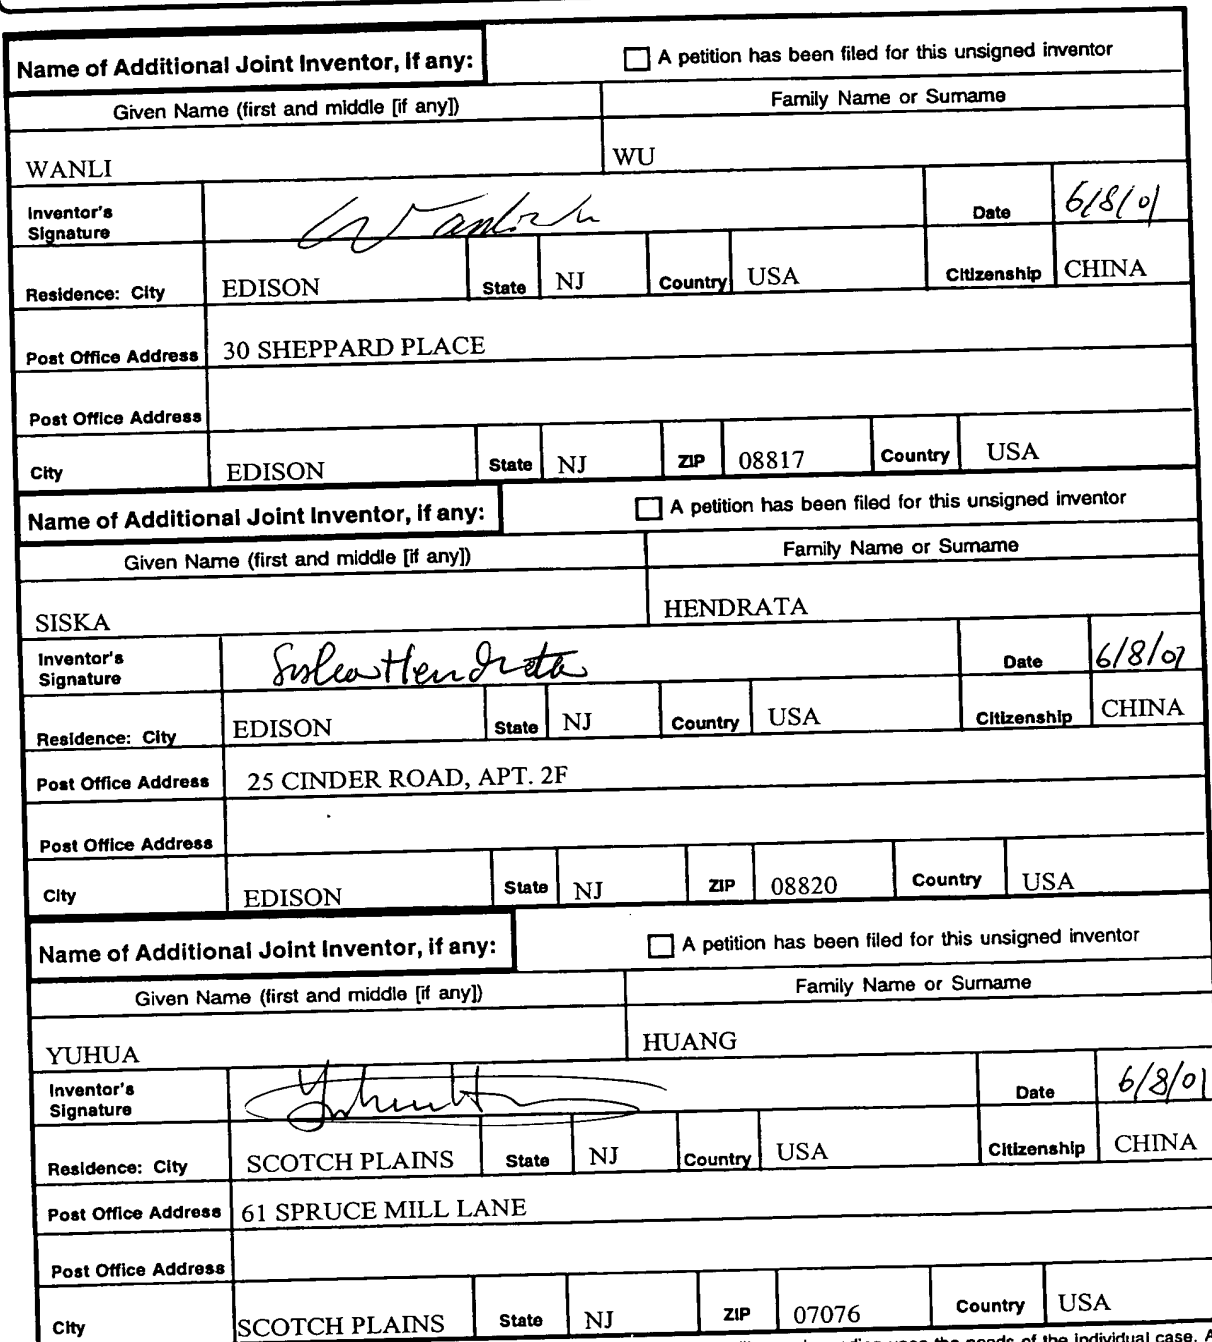 Name of Additional Joint Inventor, if any: A petition has been filed for this unsigned inventor
Given Name (first and middle [if any]) Family Name or Surname
WANLI WU
Inventor's Signature Date 6/8/01
Residence: City EDISON State NJ Country USA Citizenship CHINA
Post Office Address 30 SHEPPARD PLACE
Post Office Address
City EDISON State NJ ZIP 08817 Country USA
Name of Additional Joint Inventor, if any: A petition has been filed for this unsigned inventor
Given Name (first and middle [if any]) Family Name or Surname
SISKA HENDRATA
Inventor's Signature Siska Hendrata Date 6/8/01
Residence: City EDISON State NJ Country USA Citizenship CHINA
Post Office Address 25 CINDER ROAD, APT. 2F
Post Office Address
City EDISON State NJ ZIP 08820 Country USA
Name of Additional Joint Inventor, if any: A petition has been filed for this unsigned inventor
Given Name (first and middle [if any]) Family Name or Surname
YUHUA HUANG
Inventor's Signature Date 6/8/01
Residence: City SCOTCH PLAINS State NJ Country USA Citizenship CHINA
Post Office Address 61 SPRUCE MILL LANE
Post Office Address
City SCOTCH PLAINS State NJ ZIP 07076 Country USA
the needs of the individual case.